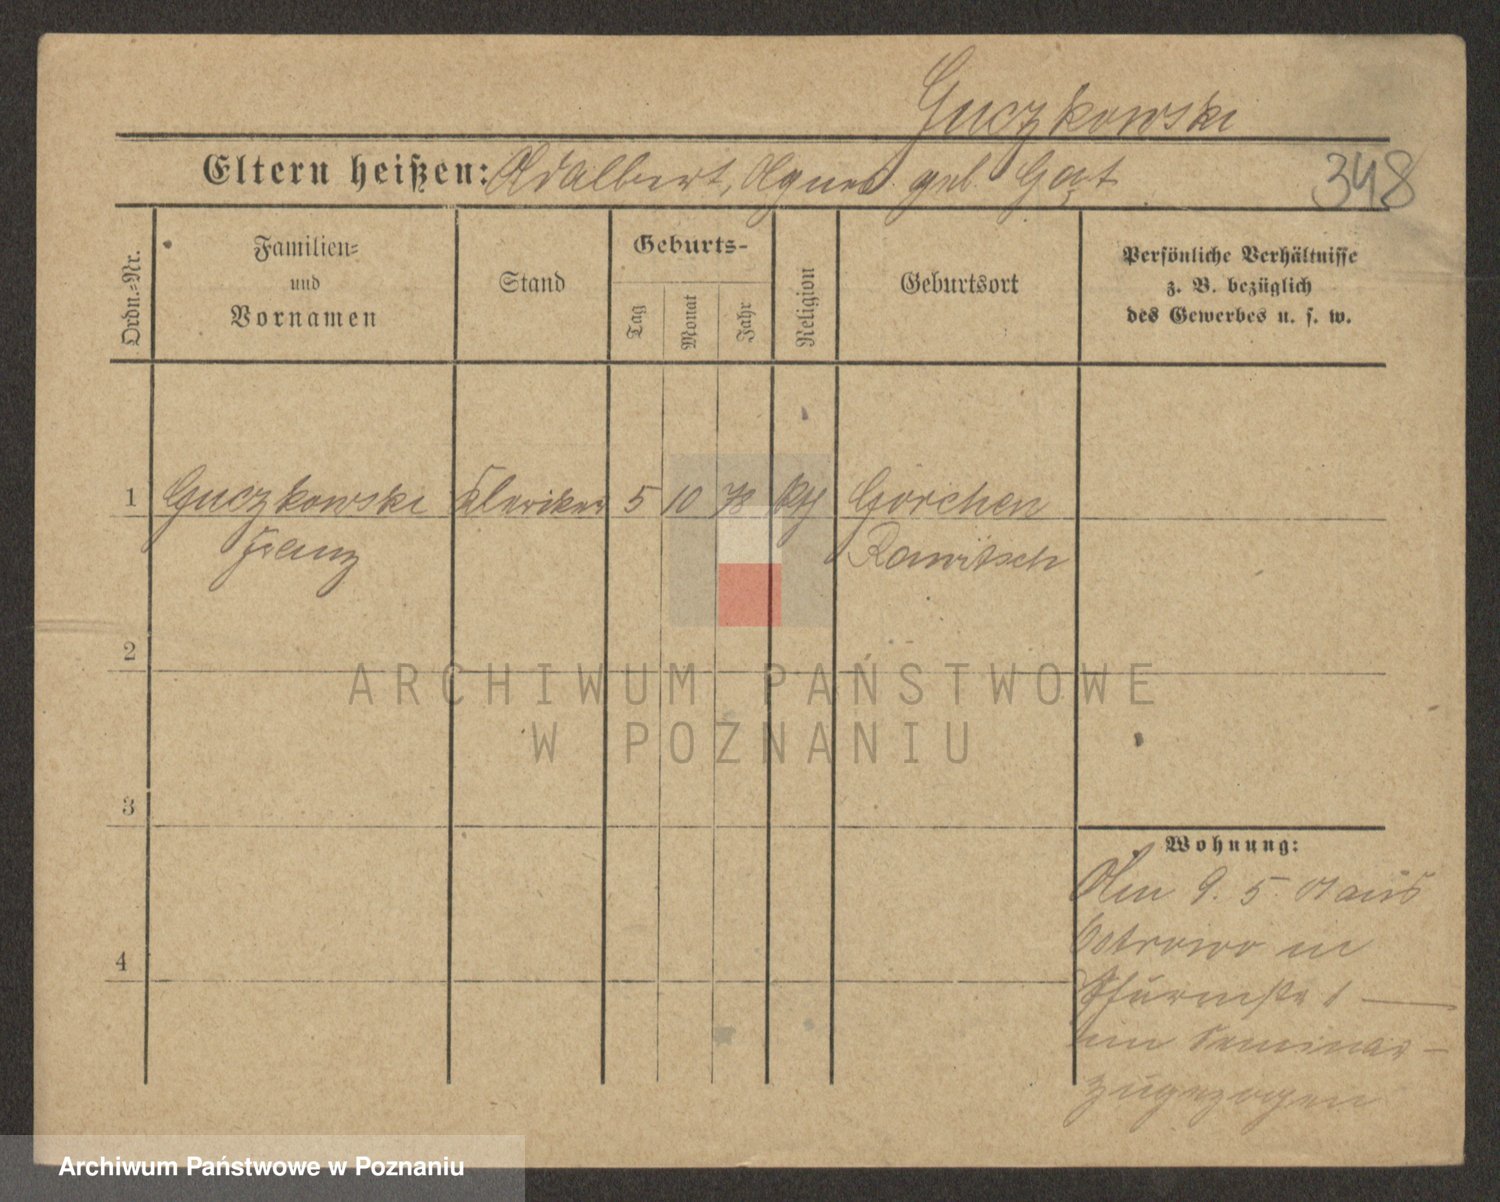 Guczkowski
Eltern heißen: Adalbert, Agnes geb. Gąt
348
Ordn.-Nr.
Familien-
und
Vornamen
Stand
Geburts-
Tag
Monat
Jahr
Religion
Geburtsort
Persönliche Verhältnisse
z. B. bezüglich
des Gewerbes u. s. w.
1 Guczkowski Kleriker 5 10 78 kth Görchen
Franz Rawitsch
2
ARCHIWUM PAŃSTWOWE
W POZNANIU
3
Wohnung:
Am 9. 5. 01 aus
Ostrowo in
1
im Seminar
zugezogen
4
Archiwum Państwowe w Poznaniu